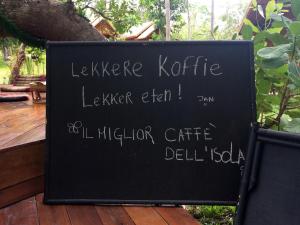 Lekkere Koffie
Lekker eten! Jan
IL MIGLIOR CAFFÈ
DELL'ISOLA